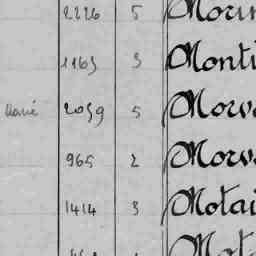 2226 5 Morin
1163 3 Monti
Marié 2059 5 Morv
965 2 Morv
1414 3 Motai
Mot